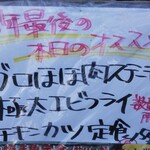 年最後の
本日のオススメ
グロほほ肉ステーキ
極太エビフライ 数量
チキンカツ定食